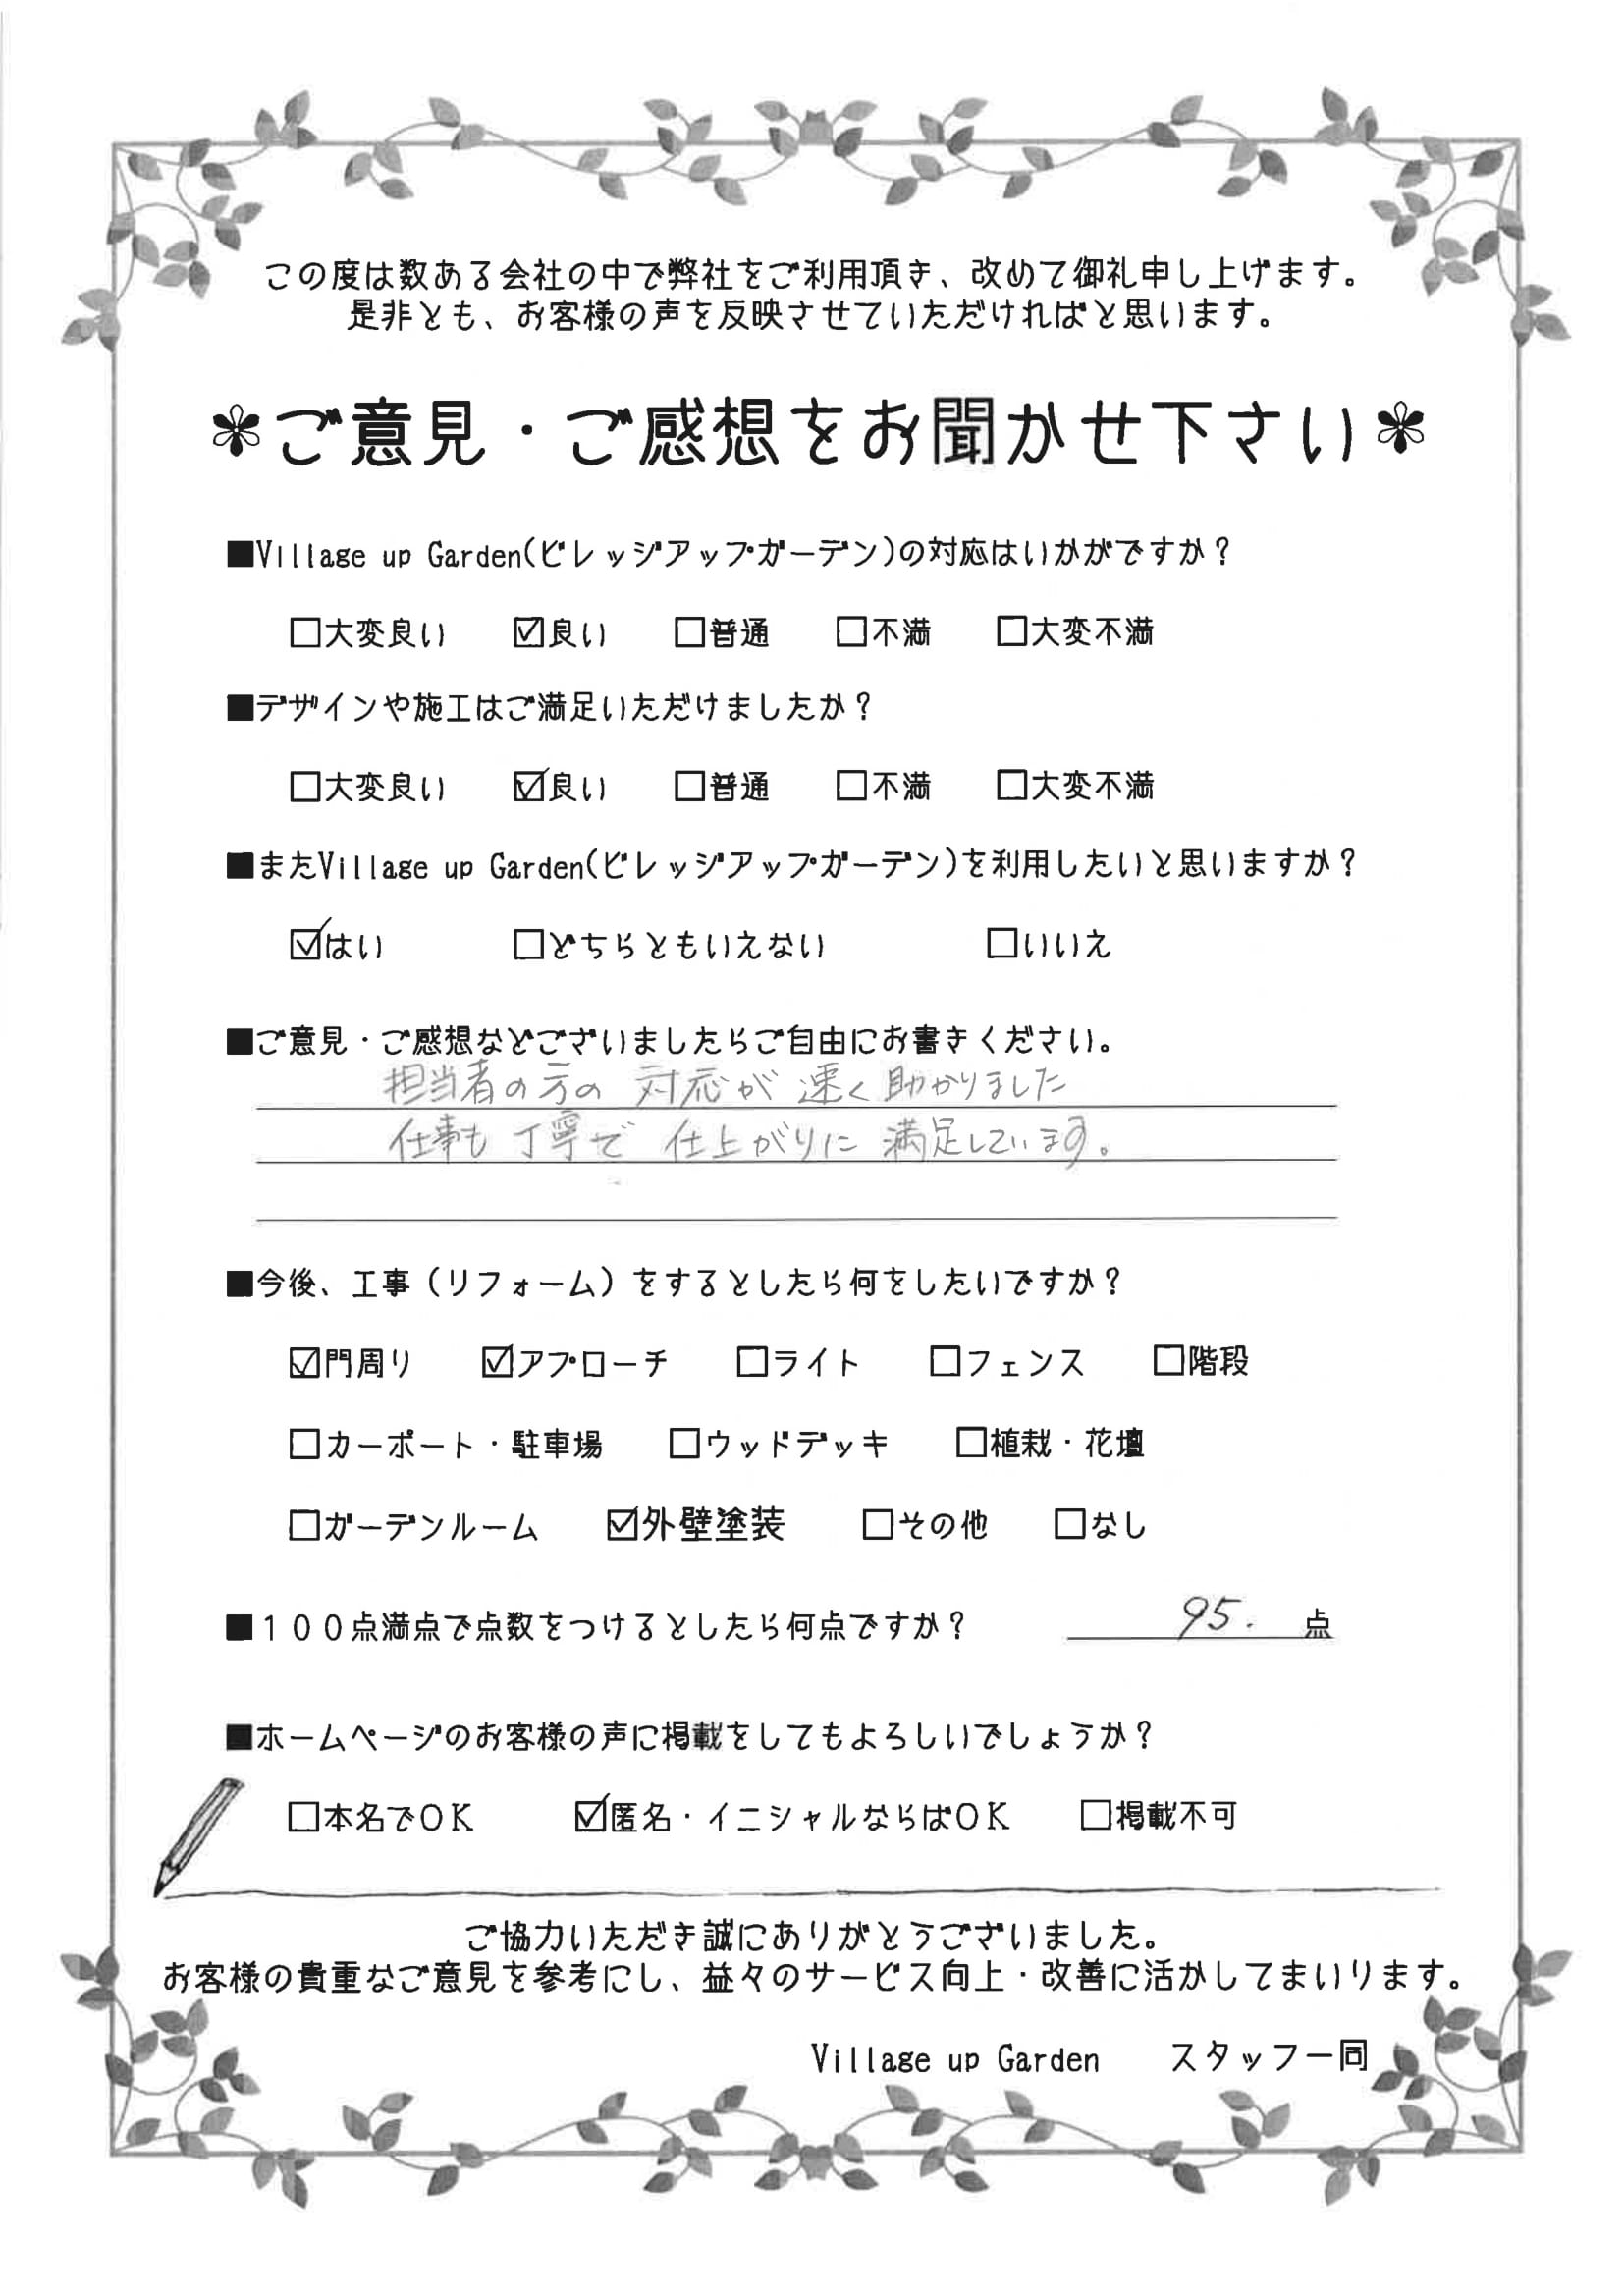 この度は数ある会社の中で弊社をご利用頂き、改めて御礼申し上げます。
是非とも、お客様の声を反映させていただければと思います。
✽ご意見・ご感想をお聞かせ下さい✽
■Village up Garden(ビレッジアップガーデン)の対応はいかがですか？
□大変良い ☑良い □普通 □不満 □大変不満
■デザインや施工はご満足いただけましたか？
□大変良い ☑良い □普通 □不満 □大変不満
■またVillage up Garden(ビレッジアップガーデン)を利用したいと思いますか？
☑はい □どちらともいえない □いいえ
■ご意見・ご感想などございましたらご自由にお書きください。
担当者の方の 対応が 速く助かりました
仕事も 丁寧で 仕上がりに 満足しています。
■今後、工事（リフォーム）をするとしたら何をしたいですか？
☑門周り ☑アプローチ □ライト □フェンス □階段
□カーポート・駐車場 □ウッドデッキ □植栽・花壇
□ガーデンルーム ☑外壁塗装 □その他 □なし
■１００点満点で点数をつけるとしたら何点ですか？ 95. 点
■ホームページのお客様の声に掲載をしてもよろしいでしょうか？
□本名でＯＫ ☑匿名・イニシャルならばＯＫ □掲載不可
ご協力いただき誠にありがとうございました。
お客様の貴重なご意見を参考にし、益々のサービス向上・改善に活かしてまいります。
Village up Garden スタッフ一同